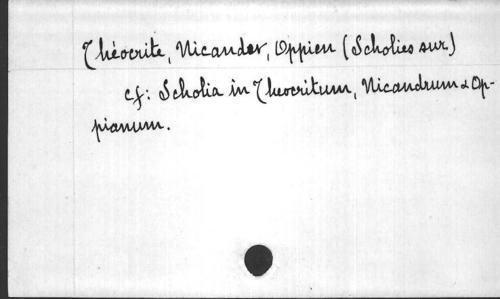 Théocrite, Nicander, Oppien (Scholies sur)
cf: Scholia in Theocritum, Nicandrum & Op-
pianum.